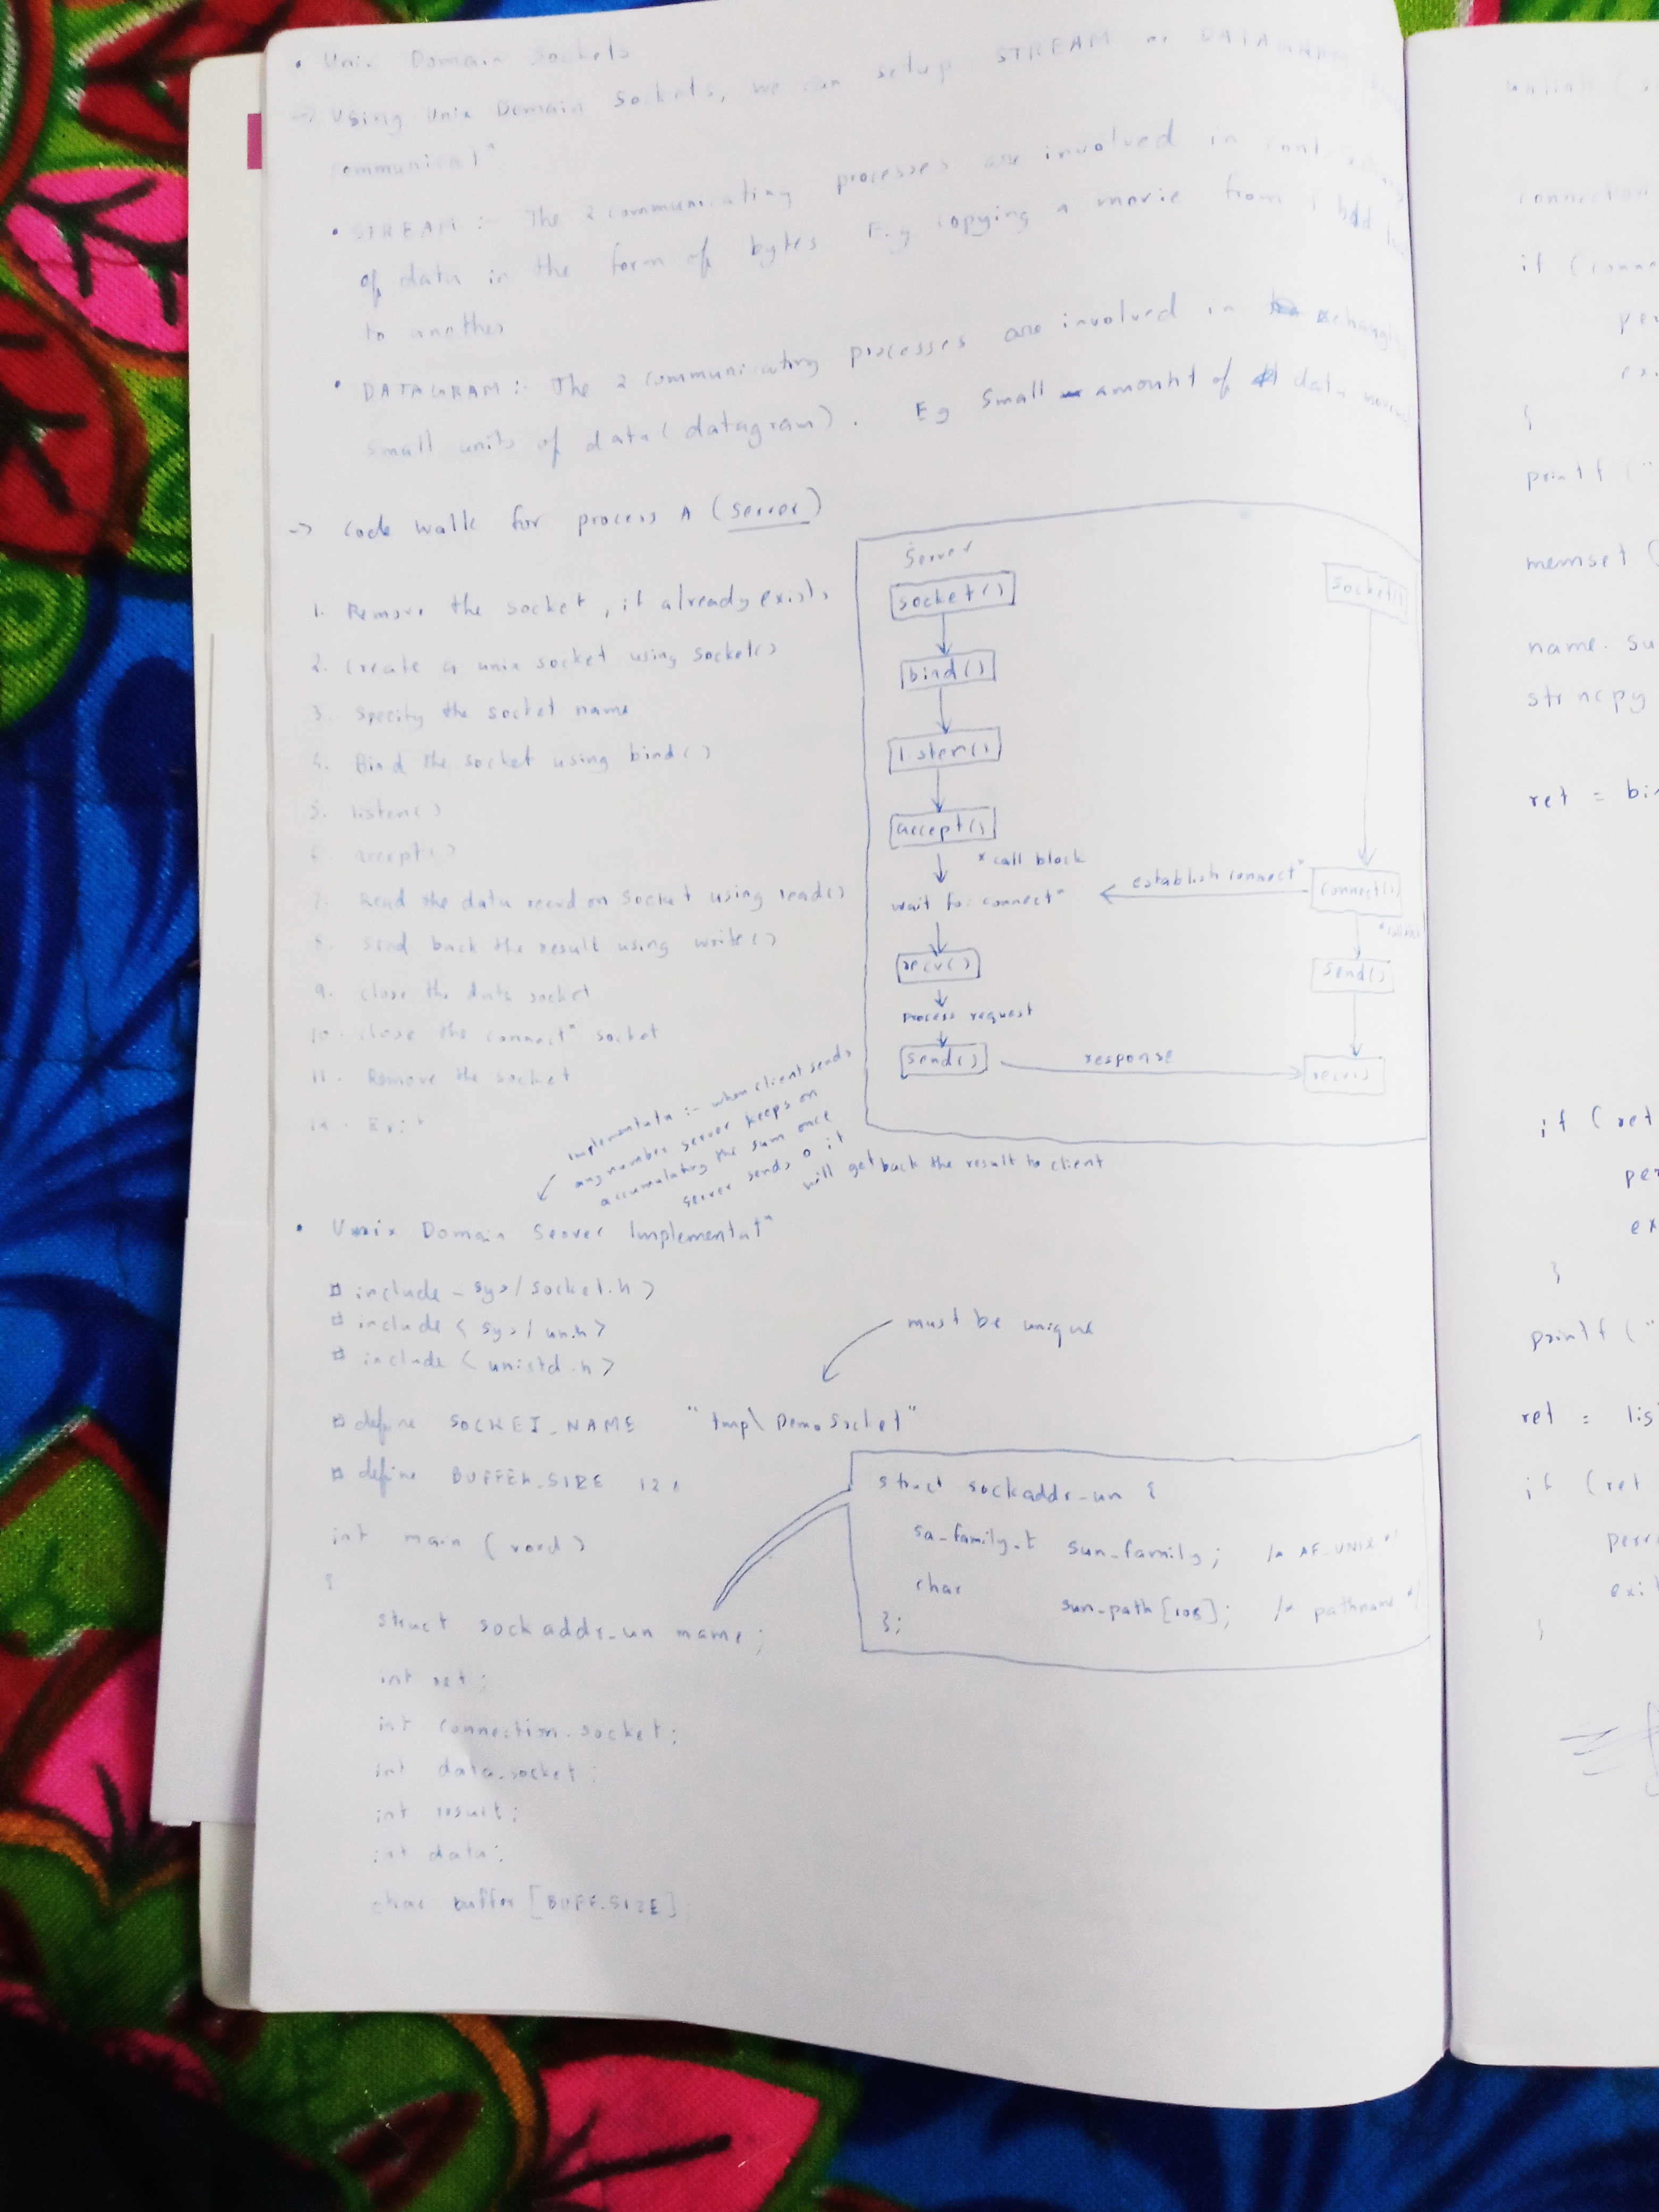 • Unix Domain Sockets
→ Using Unix Domain Sockets, we can setup STREAM or DATAGRAM
communicatⁿ
• STREAM :- The 2 communicating processes are involved in cont.
of data in the form of bytes E.g copying a movie from 1 hdd
to another
• DATAGRAM :- The 2 communicating processes are involved in
small units of data (datagram). Eg Small amount of data
→ code walk for process A (server)
1. Remove the socket, if already exists
2. Create a unix socket using socket()
3. specify the socket name
4. Bind the socket using bind()
5. listen()
6. accept()
7. Read the data recvd on socket using read()
8. send back the result using write()
9. close the data socket
10. close the connectⁿ socket
11. Remove the socket
12. Exit
Server
socket()
bind()
listen()
accept()
* call block
wait for connectⁿ
recv()
process request
send()
response
socket()
establish connectⁿ
connect()
send()
recv()
Implementatn :- when client sends
any number server keeps on
accumulating the sum once
server sends 0 it
will get back the result to client
• Unix Domain Server Implementatⁿ
# include - sys/socket.h>
# include < sys/un.h>
# include < unistd.h>
must be unique
# define SOCKET_NAME "tmp\DemoSocket"
# define BUFFER_SIZE 128
int main (void)
{
struct sockaddr_un name;
int ret;
int connection_socket;
int data_socket;
int result;
int data;
char buffer [BUFF_SIZE];
struct sockaddr_un {
sa_family_t sun_family; /* AF_UNIX */
char sun_path[108]; /* pathname */
};
unlink (s
connection
if (conn
per
ex
}
printf ("
memset (
name. su
strncpy
ret = bin
if (ret
per
ex
}
printf ("
ret = lis
if (ret
perr
exit
}